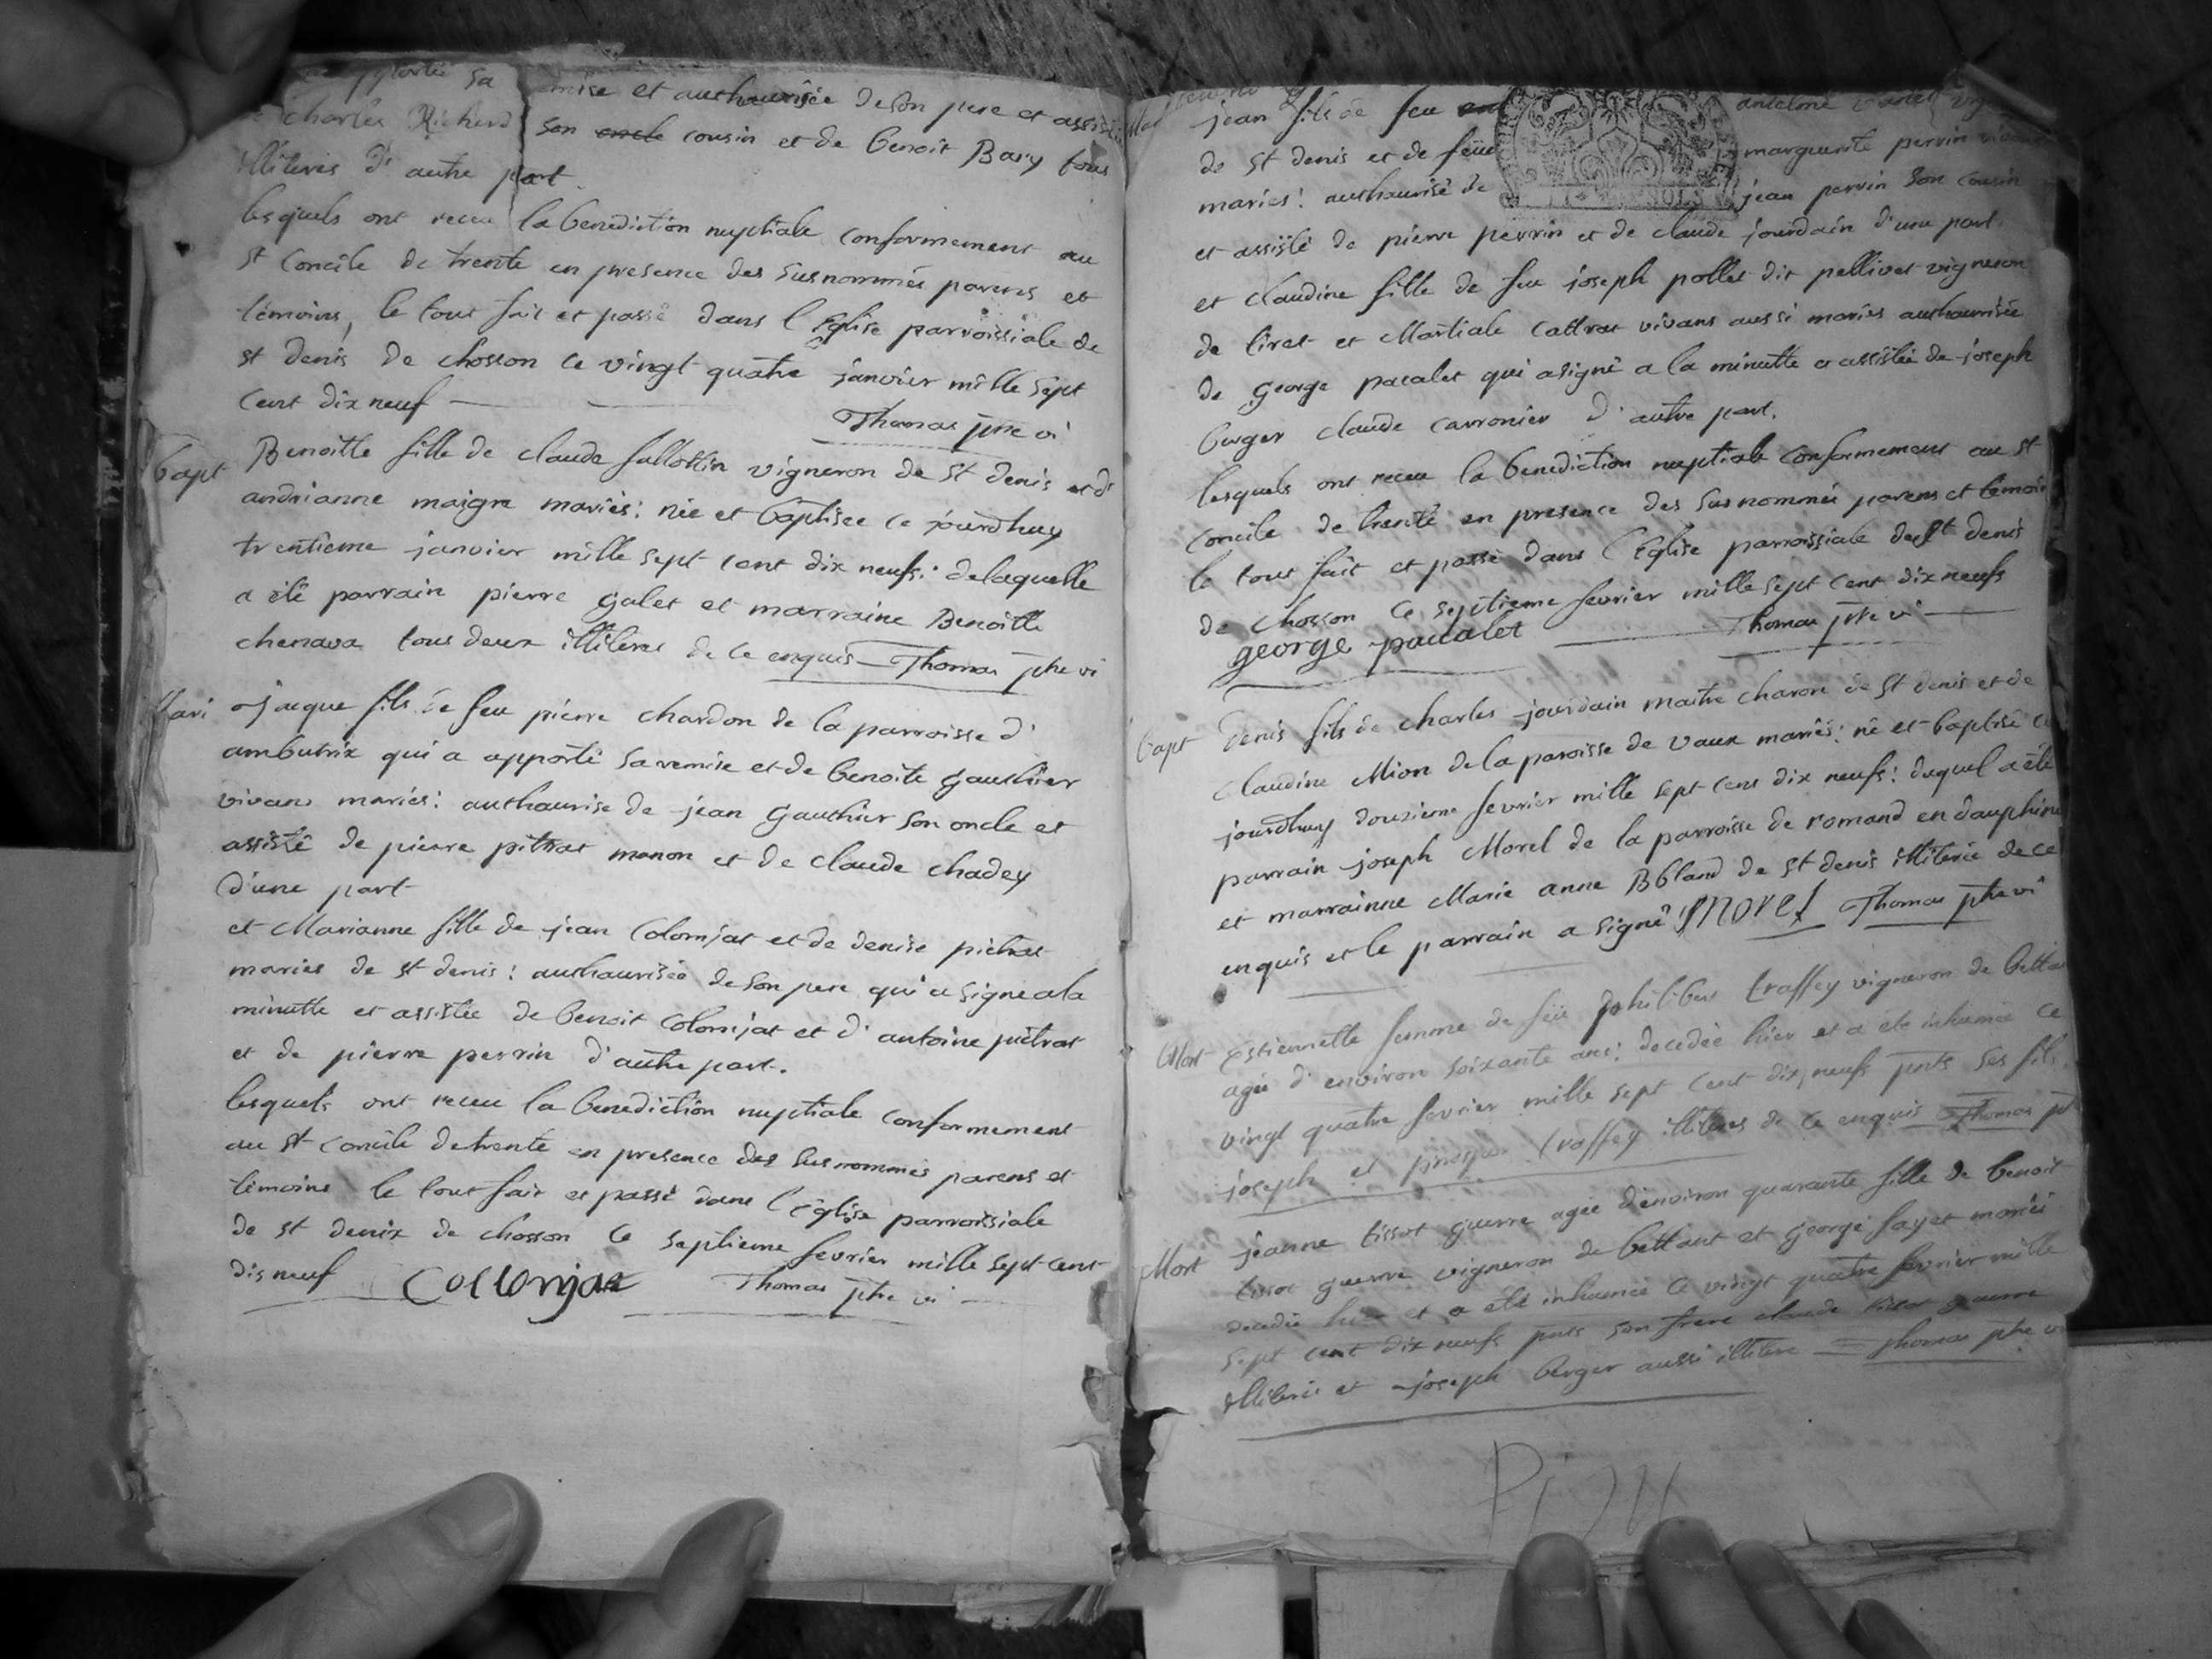 sa mise et authaurisée de son pere et assistée
charles Richerd son oncle cousin et de benoit Bary tous
illiteres d'autre part.
lesquels ont receu la benediction nuptiale conformement au
st concile de trente en presence des susnommés parens et
témoins, le tout fait et passé dans l'Eglise parroissiale de
st denis de chosson ce vingt quatre janvier mille sept
cent dix neuf
Thomas ptre vi
bapt
Benoitte fille de claude fallottin vigneron de st denis et d'
andrianne maigre mariés: née et baptisée ce jourdhuy
trentieme janvier mille sept cent dix neufs: de laquelle
a été parrain pierre galet et marraine Benoitte
chenava tous deux illiteres de ce enquis Thomas ptre vi
Mari
jacque fils de feu pierre chardon de la parroisse d'
ambutrix qui a apporté sa remise et de benoite gauthier
vivans mariés: authaurise de jean gauthier son oncle et
assisté de pierre pitrat manon et de claude chadey
d'une part
et Marianne fille de jean Colomjat et de denise pietrat
mariés de st denis: authaurisée de son pere qui a signe a la
minutte et assistée de benoit colomjat et d'antoine pietrat
et de pierre perrin d'autre part.
lesquels ont receu la benediction nuptiale conformement
au st concile de trente en presence des susnommés parens et
témoins le tout fait et passé dans l'Eglise parroissiale
de st denix de chosson ce septieme fevrier mille sept cent
dis neuf Collonjat Thomas ptre vi
Mar
jean fils de feu antelme
de st denis et de feue marguerite perrin vivans
mariés: authaurisé de jean perrin son cousin
et assisté de pierre perrin et de claude jourdain d'une part.
et claudine fille de feu joseph pollet dit pellivet vigneron
de tiret et Martiale Cattrat vivans aussi mariés authaurisée
de george pacalet qui a signé a la minutte et assistée de joseph
berger claude carronier d'autre part.
lesquels ont receu la benediction nuptiale conformement au st
concile de trente en presence des susnommés parens et témoins
le tout fait et passé dans l'Eglise parroissiale de st denis
de chosson ce septieme fevrier mille sept cent dix neufs
george pacalet Thomas ptre vi
bapt
denis fils de charles jourdain maitre charon de st denis et de
claudine Mion de la paroisse de vaux mariés: né et baptisé ce
jourdhuy douzieme fevrier mille sept cens dix neufs: duquel a été
parrain joseph Morel de la parroisse de romand en dauphiné
et marrainne Marie anne Bbland de st denis illiterée de ce
enquis et le parrain a signé Morel Thomas ptre vi
Mort
Estiennette femme de feü philibert traffey vigneron de bettan
agée d'environ soixante ans: decedée hier et a ete inhumée ce
vingt quatre fevrier mille sept cent dix neufs pnts ses fils
joseph et traffey illiteres de ce enquis Thomas pt
Mort
jeanne tissot guerre agée d'environ quarante fille de benoit
tissot guerre vigneron de bettant et george fayet mariés
decedée hier et a été inhumée ce vingt quatre fevrier mille
sept cent dix neufs pnts son frere claude tissot guerre
illiteré et joseph berger aussi illitere Thomas ptre vi